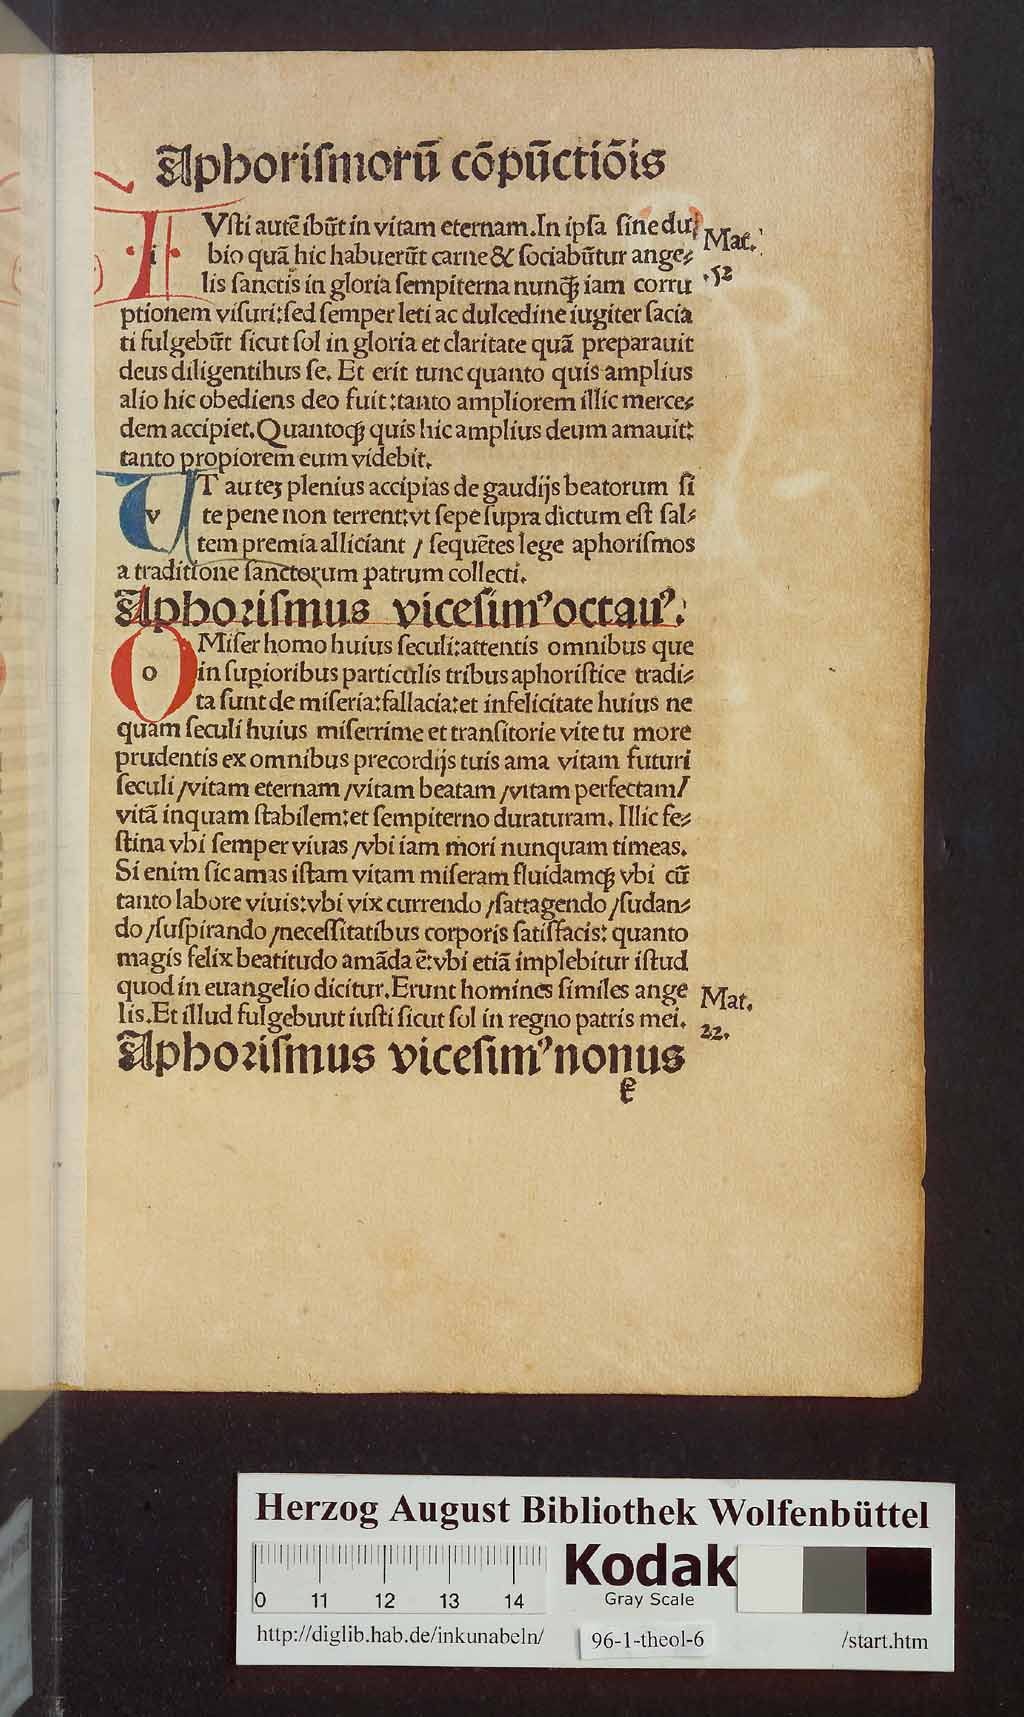 Aphoriſmorū cōpūctiōis
IVſti autē ibūt in vitam eternam. In ipſa ſine du⸗
bio quā hic habuerūt carne & ſociabūtur ange⸗
lis ſanctis in gloria ſempiterna nunqꝫ iam corru
ptionem viſuri:ſed ſemper leti ac dulcedine iugiter ſacia
ti fulgebūt ſicut ſol in gloria et claritate quā preparauit
deus diligentibus ſe. Et erit tunc quanto quis amplius
alio hic obediens deo fuit:tanto ampliorem illic merce⸗
dem accipiet. Quantoqꝫ quis hic amplius deum amauit:
tanto propiorem eum videbit.
VT auteꝫ plenius accipias de gaudijs beatorum ſi
te pene non terrent:vt ſepe ſupra dictum eſt ſal⸗
tem premia alliciant / ſequētes lege aphoriſmos
a traditione ſanctorum patrum collecti.
Aphoriſmus viceſimꝰ octauꝰ.
O Miſer homo huius ſeculi:attentis omnibus que
in ſuꝑioribus particulis tribus aphoriſtice tradi⸗
ta ſunt de miſeria:fallacia:et infelicitate huius ne
quam ſeculi huius miſerrime et tranſitorie vite tu more
prudentis ex omnibus precordijs tuis ama vitam futuri
ſeculi /vitam eternam /vitam beatam /vitam perfectam/
vitā inquam ſtabilem:et ſempiterno duraturam. Illic fe⸗
ſtina vbi ſemper viuas /vbi iam mori nunquam timeas.
Si enim ſic amas iſtam vitam miſeram fluidamqꝫ vbi cū
tanto labore viuis:vbi vix currendo /ſattagendo /ſudan⸗
do /ſuſpirando /neceſſitatibus corporis ſatiſfacis: quanto
magis felix beatitudo amāda ē:vbi etiā implebitur iſtud
quod in euangelio dicitur. Erunt homines ſimiles ange
lis. Et illud fulgebuut iuſti ſicut ſol in regno patris mei.
Aphoriſmus viceſimꝰ nonus
Mat.
.52
Mat.
22.
Herzog August Bibliothek Wolfenbüttel
0 11 12 13 14
Kodak
Gray Scale
http://diglib.hab.de/inkunabeln/ 96-1-theol-6 /start.htm